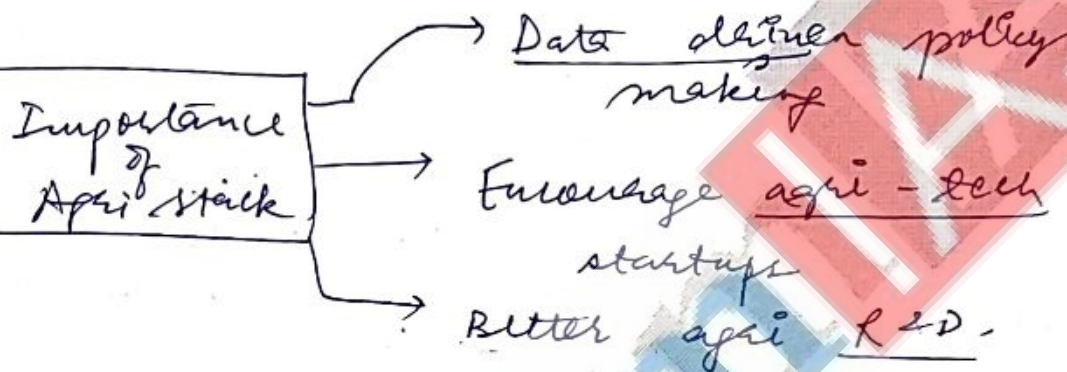 Importance
of
Agri stack
Data driven policy
making
Encourage agri-tech
startups
Better agri R&D.